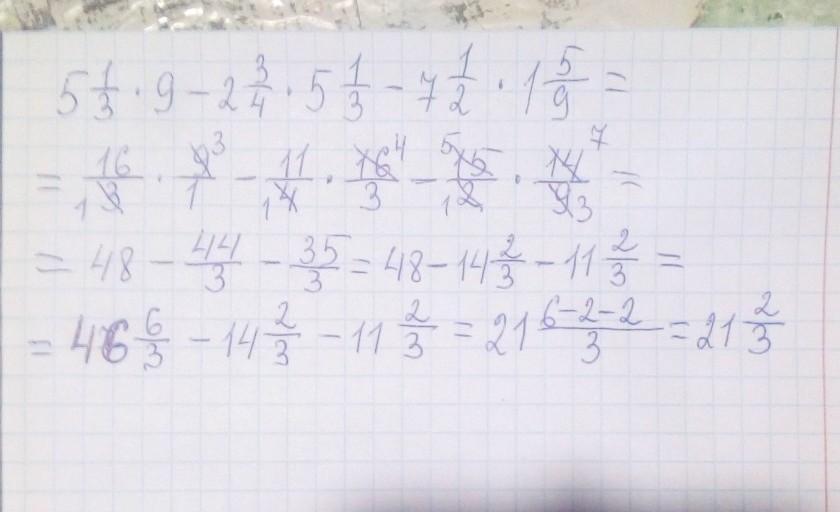 5 1/3 · 9 - 2 3/4 · 5 1/3 - 7 1/2 · 1 5/9 =
= 16/3 1 · 9 3/1 - 11/4 1 · 16 4/3 - 5 15/2 1 · 14 7/9 3 =
= 48 - 44/3 - 35/3 = 48 - 14 2/3 - 11 2/3 =
= 46 6/3 - 14 2/3 - 11 2/3 = 21 (6-2-2)/3 = 21 2/3